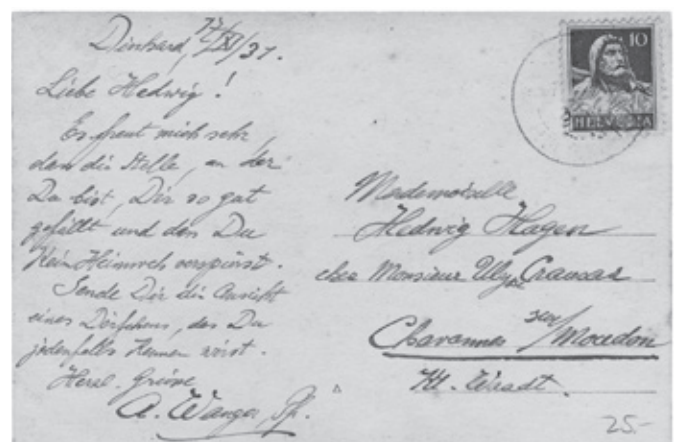 Dinhard, /XI/31.
Liebe Hedwig!
Es freut mich sehr,
dass die Stelle, an der
Du bist, Dir so gut
gefällt und dass Du
kein Heimweh verspürst.
Sende Dir die Ansicht
eines Dörfchens, das Du
jedenfalls kennen wirst.
Herzl. Grüsse
A. Wanger, Pfr.
10
HELVETIA
Mademoiselle
Hedwig Hagen
chez Monsieur Ulysse
Chavannes sur/Moudon
Kt. Waadt.
25.-